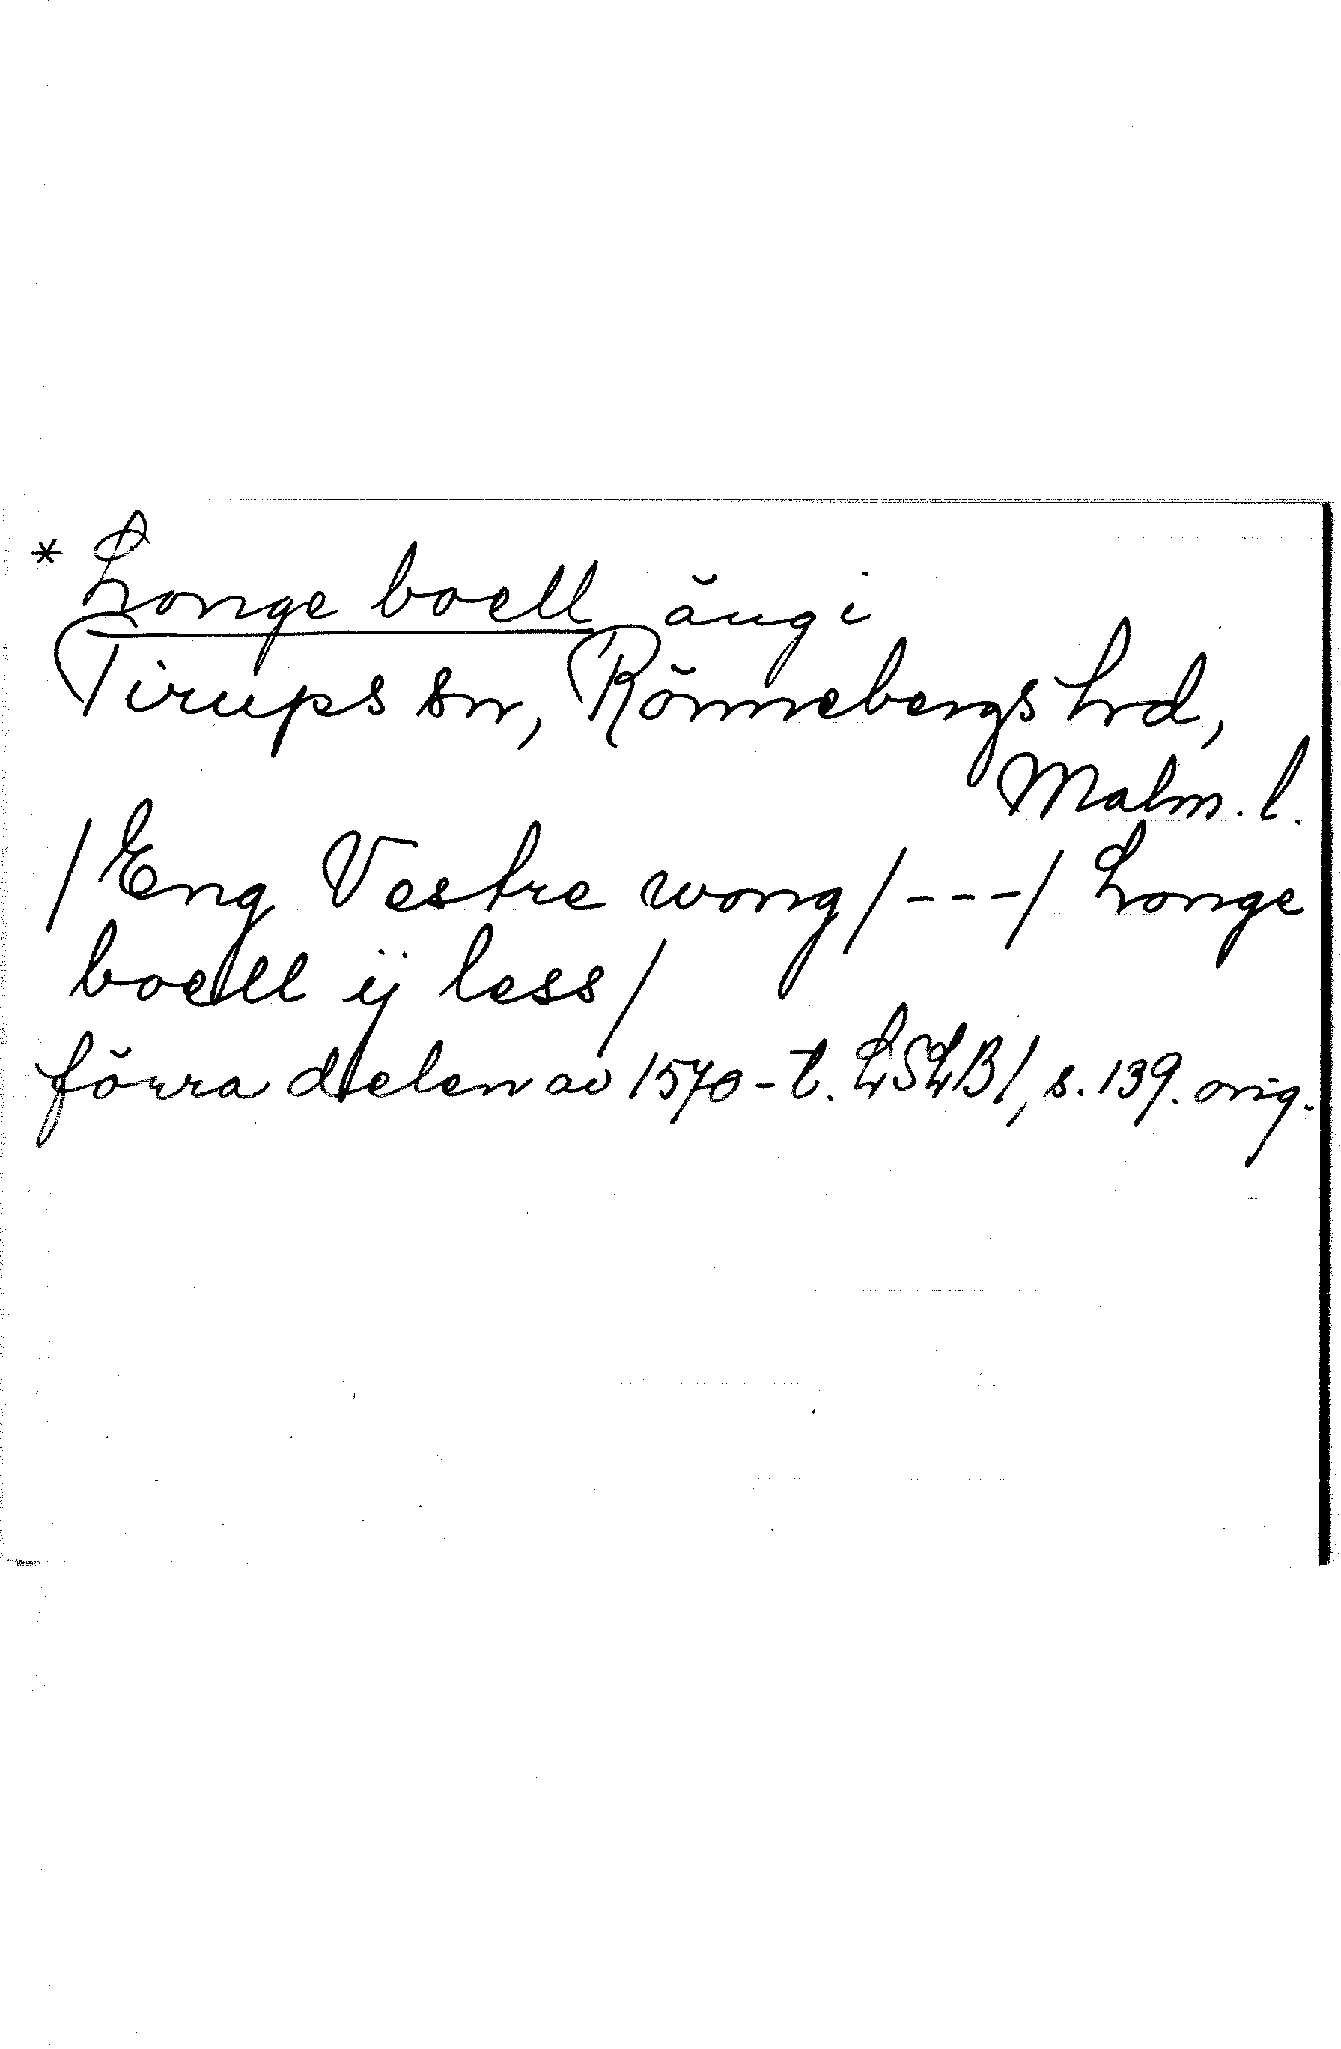 * Longe boell äng i
Tirups sn, Rönnebergs hrd,
Malm. l.
/Eng Vestre wong/---/ Longe
boell ij less/
förra delen av 1570-t. LSLB1, s. 139. orig.